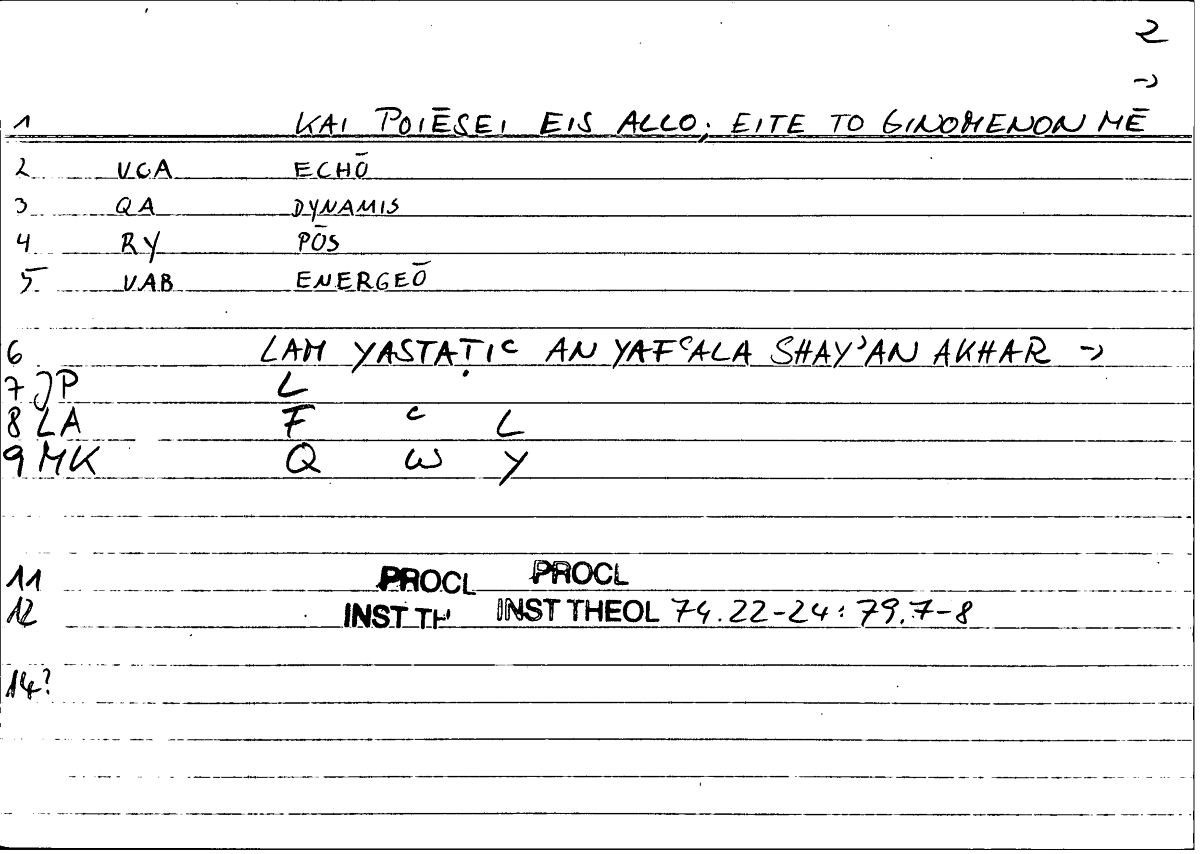 2
→
1 KAI POIĒSEI EIS ALLO; EITE TO GINOMENON MĒ
2 VCA ECHŌ
3 QA DYNAMIS
4 RY PŌS
5 VAB ENERGEŌ
6 LAM YASTAṬIᶜ AN YAFᶜALA SHAYʾAN AKHAR →
7 JP L
8 LA F ᶜ L
9 MK Q W Y
11 PROCL PROCL
12 INST TH INST THEOL 74.22-24: 79.7-8
14?